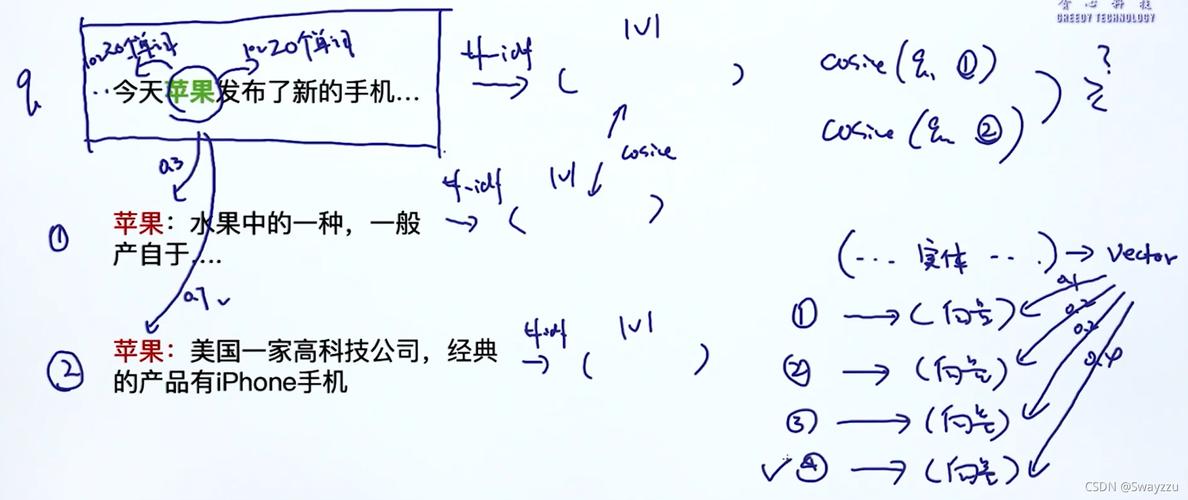 贪心科技
GREEDY TECHNOLOGY
q
10~20个单词 10~20个单词
..今天苹果发布了新的手机...
tf-idf
→ ( )
|V|
cosine(q, ①)
cosine(q, ②)
?
≥
cosine
0.3
①
苹果：水果中的一种，一般
产自于....
tf-idf
→ ( )
|V|
0.7 ✓
②
苹果：美国一家高科技公司，经典
的产品有iPhone手机
tf-idf
→ ( )
|V|
(... 实体 ...) → vector
① → (向量) 0.1
② → (向量) 0.2
③ → (向量) 0.2
✓④ → (向量) 0.4
CSDN @Swayzzu